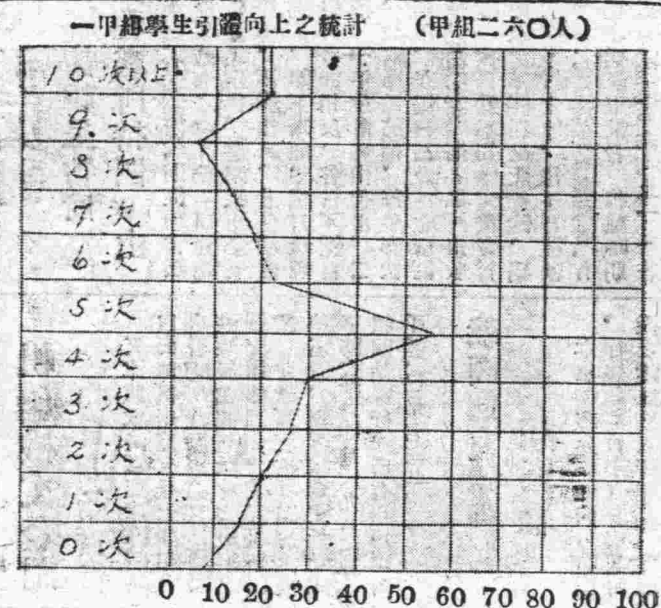 一甲組學生引體向上之統計 （甲組二六〇人）
10次以上
9.次
8次
7次
6次
5次
4次
3次
2次
1次
0次
0 10 20 30 40 50 60 70 80 90 100